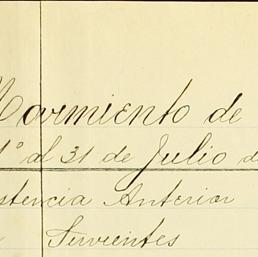 Movmiento de
1º al 31 de Julio d
stencia Anterior
Sirvientes